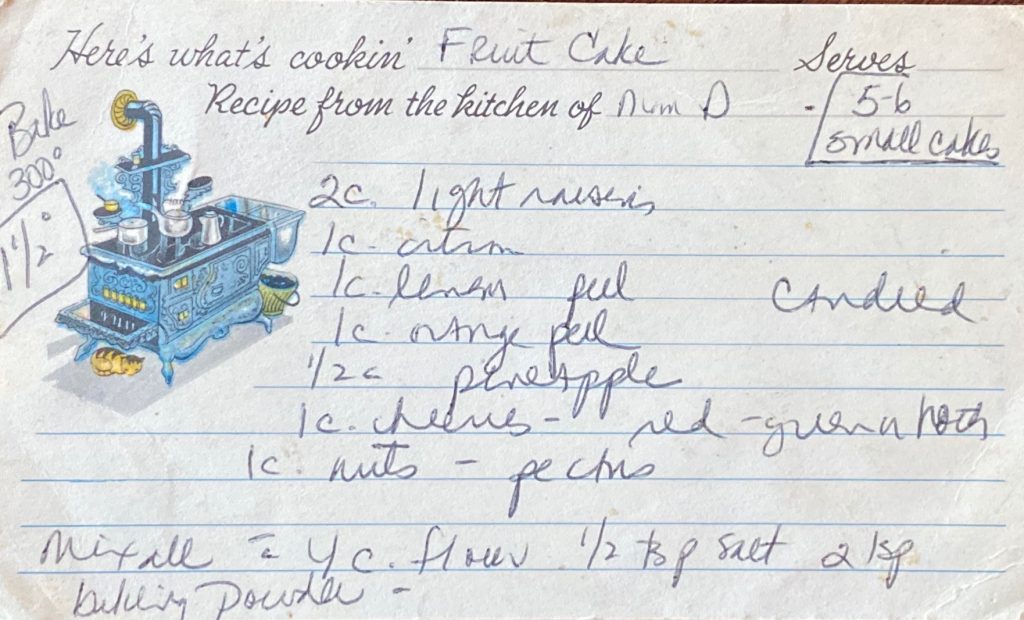 Here's what's cookin' Fruit Cake Serves
Recipe from the kitchen of Mum D - 5-6
small cakes
Bake
300°
1 1/2°
2c. light raisins
1c. citron
1c. lemon peel Candied
1c. orange peel
1/2 c pineapple
1c. cherries - red - green or both
1c. nuts - pecans
Mix all = 4 c. flour 1/2 tsp salt 2 tsp
baking powder -